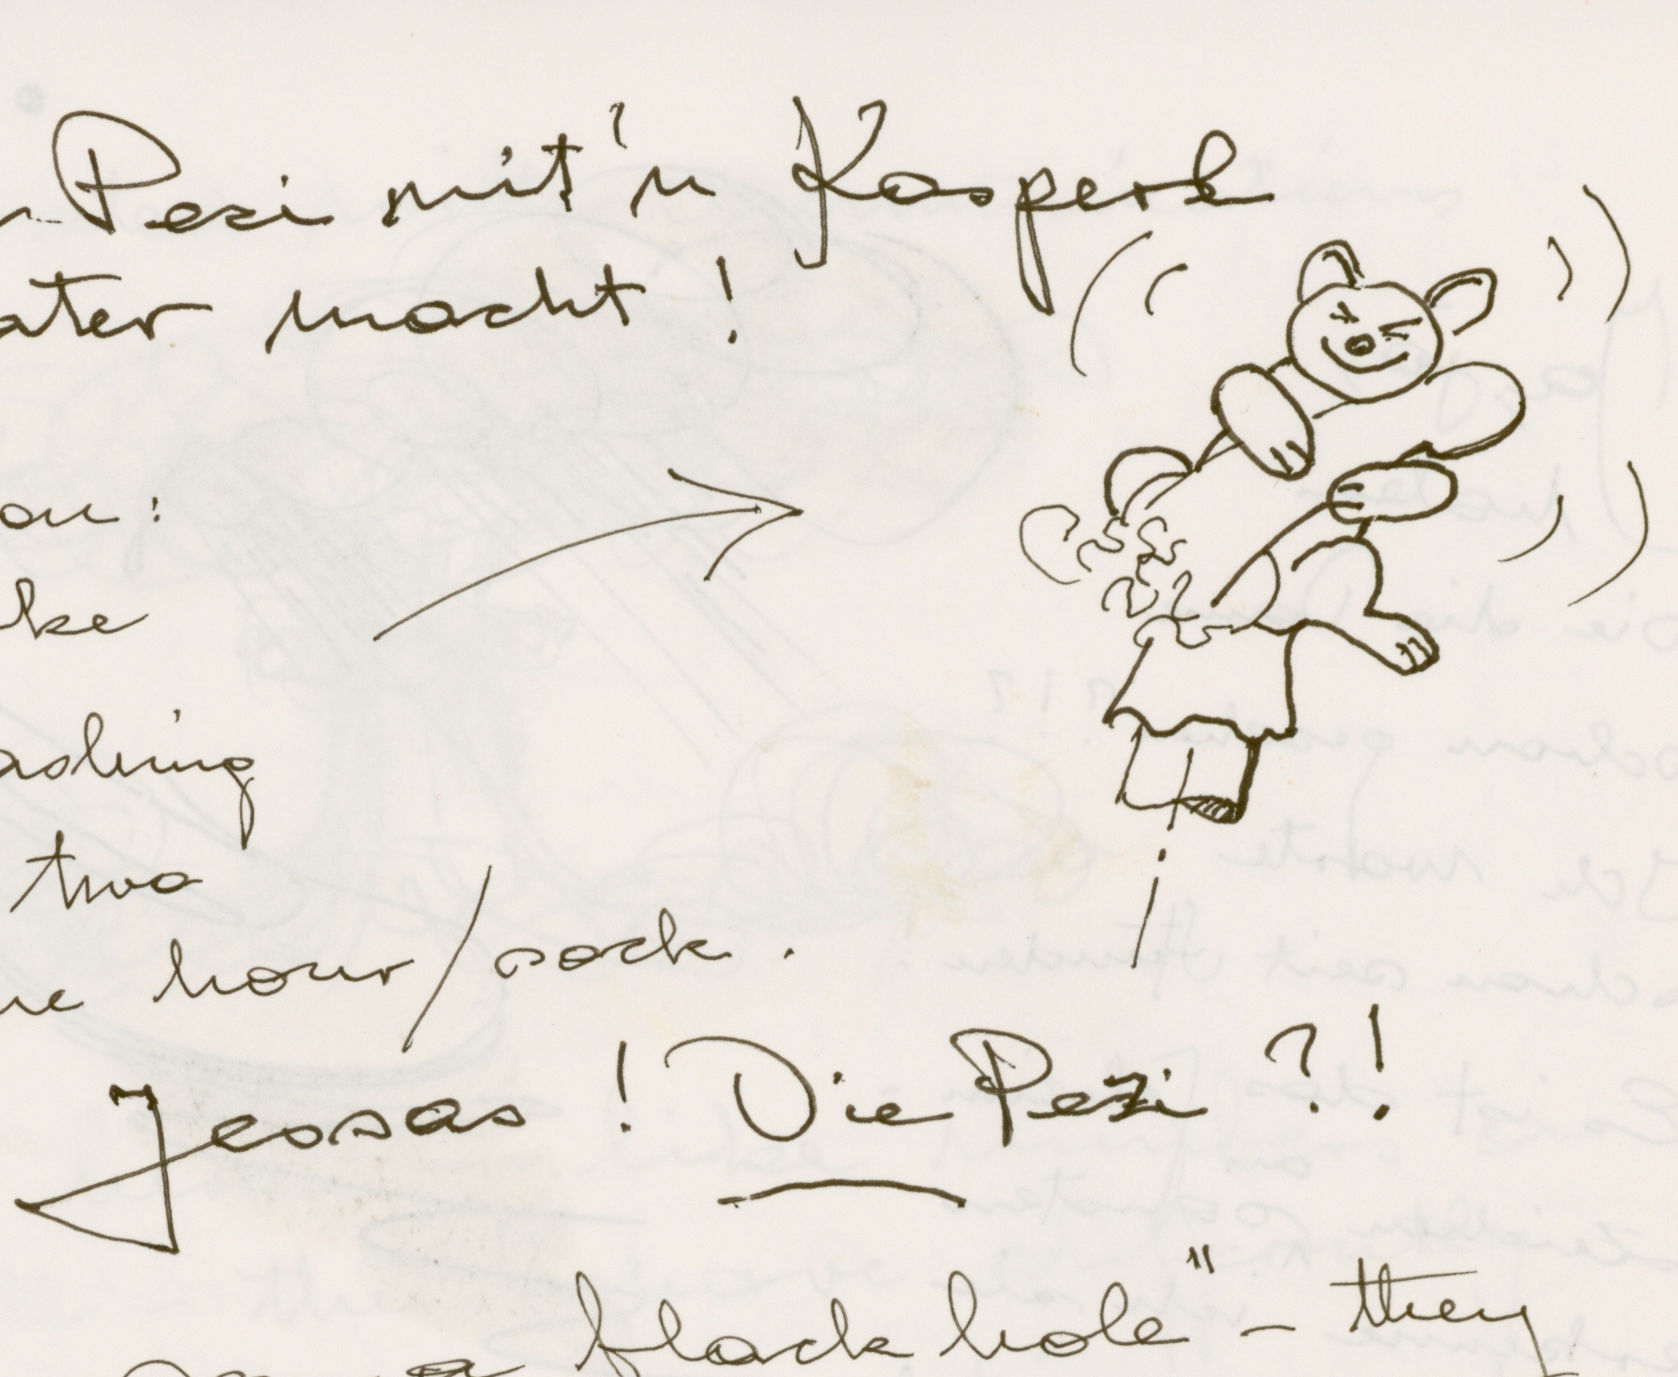 Pezi mit'n Kasperl
ater macht!
on:
ke
ashing
two
ne hour/sock.
Jessas! Die Pezi?!
a black hole" – they